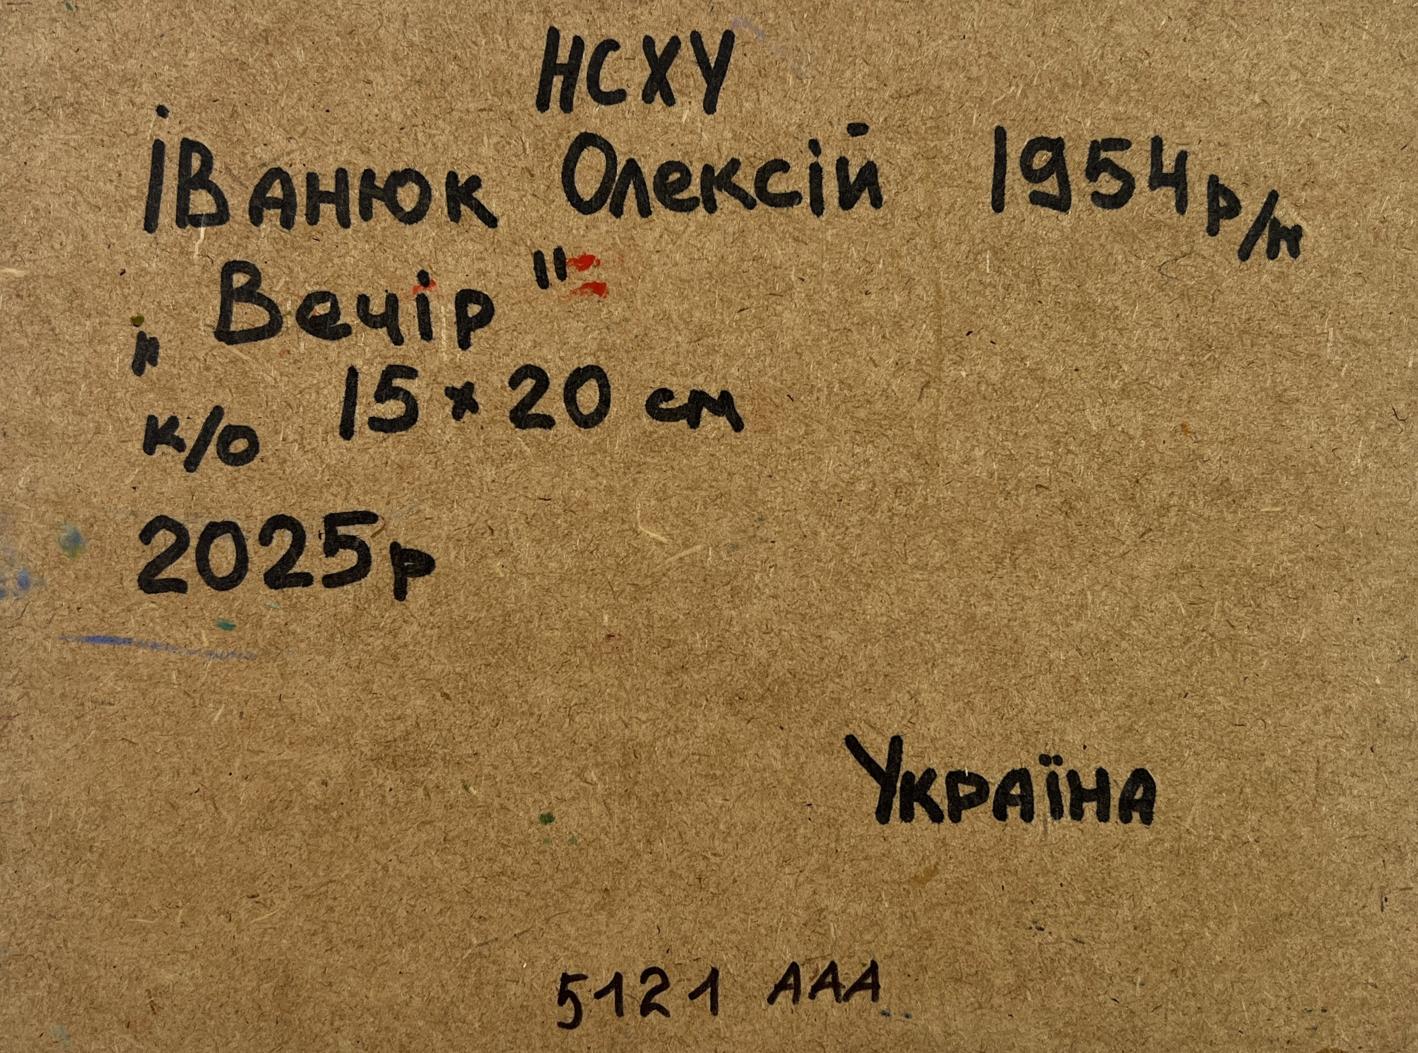 НСХУ
Іванюк Олексій 1954 р/н
„Вечір"
к/о 15 × 20 см
2025р
Україна
5121 ААА